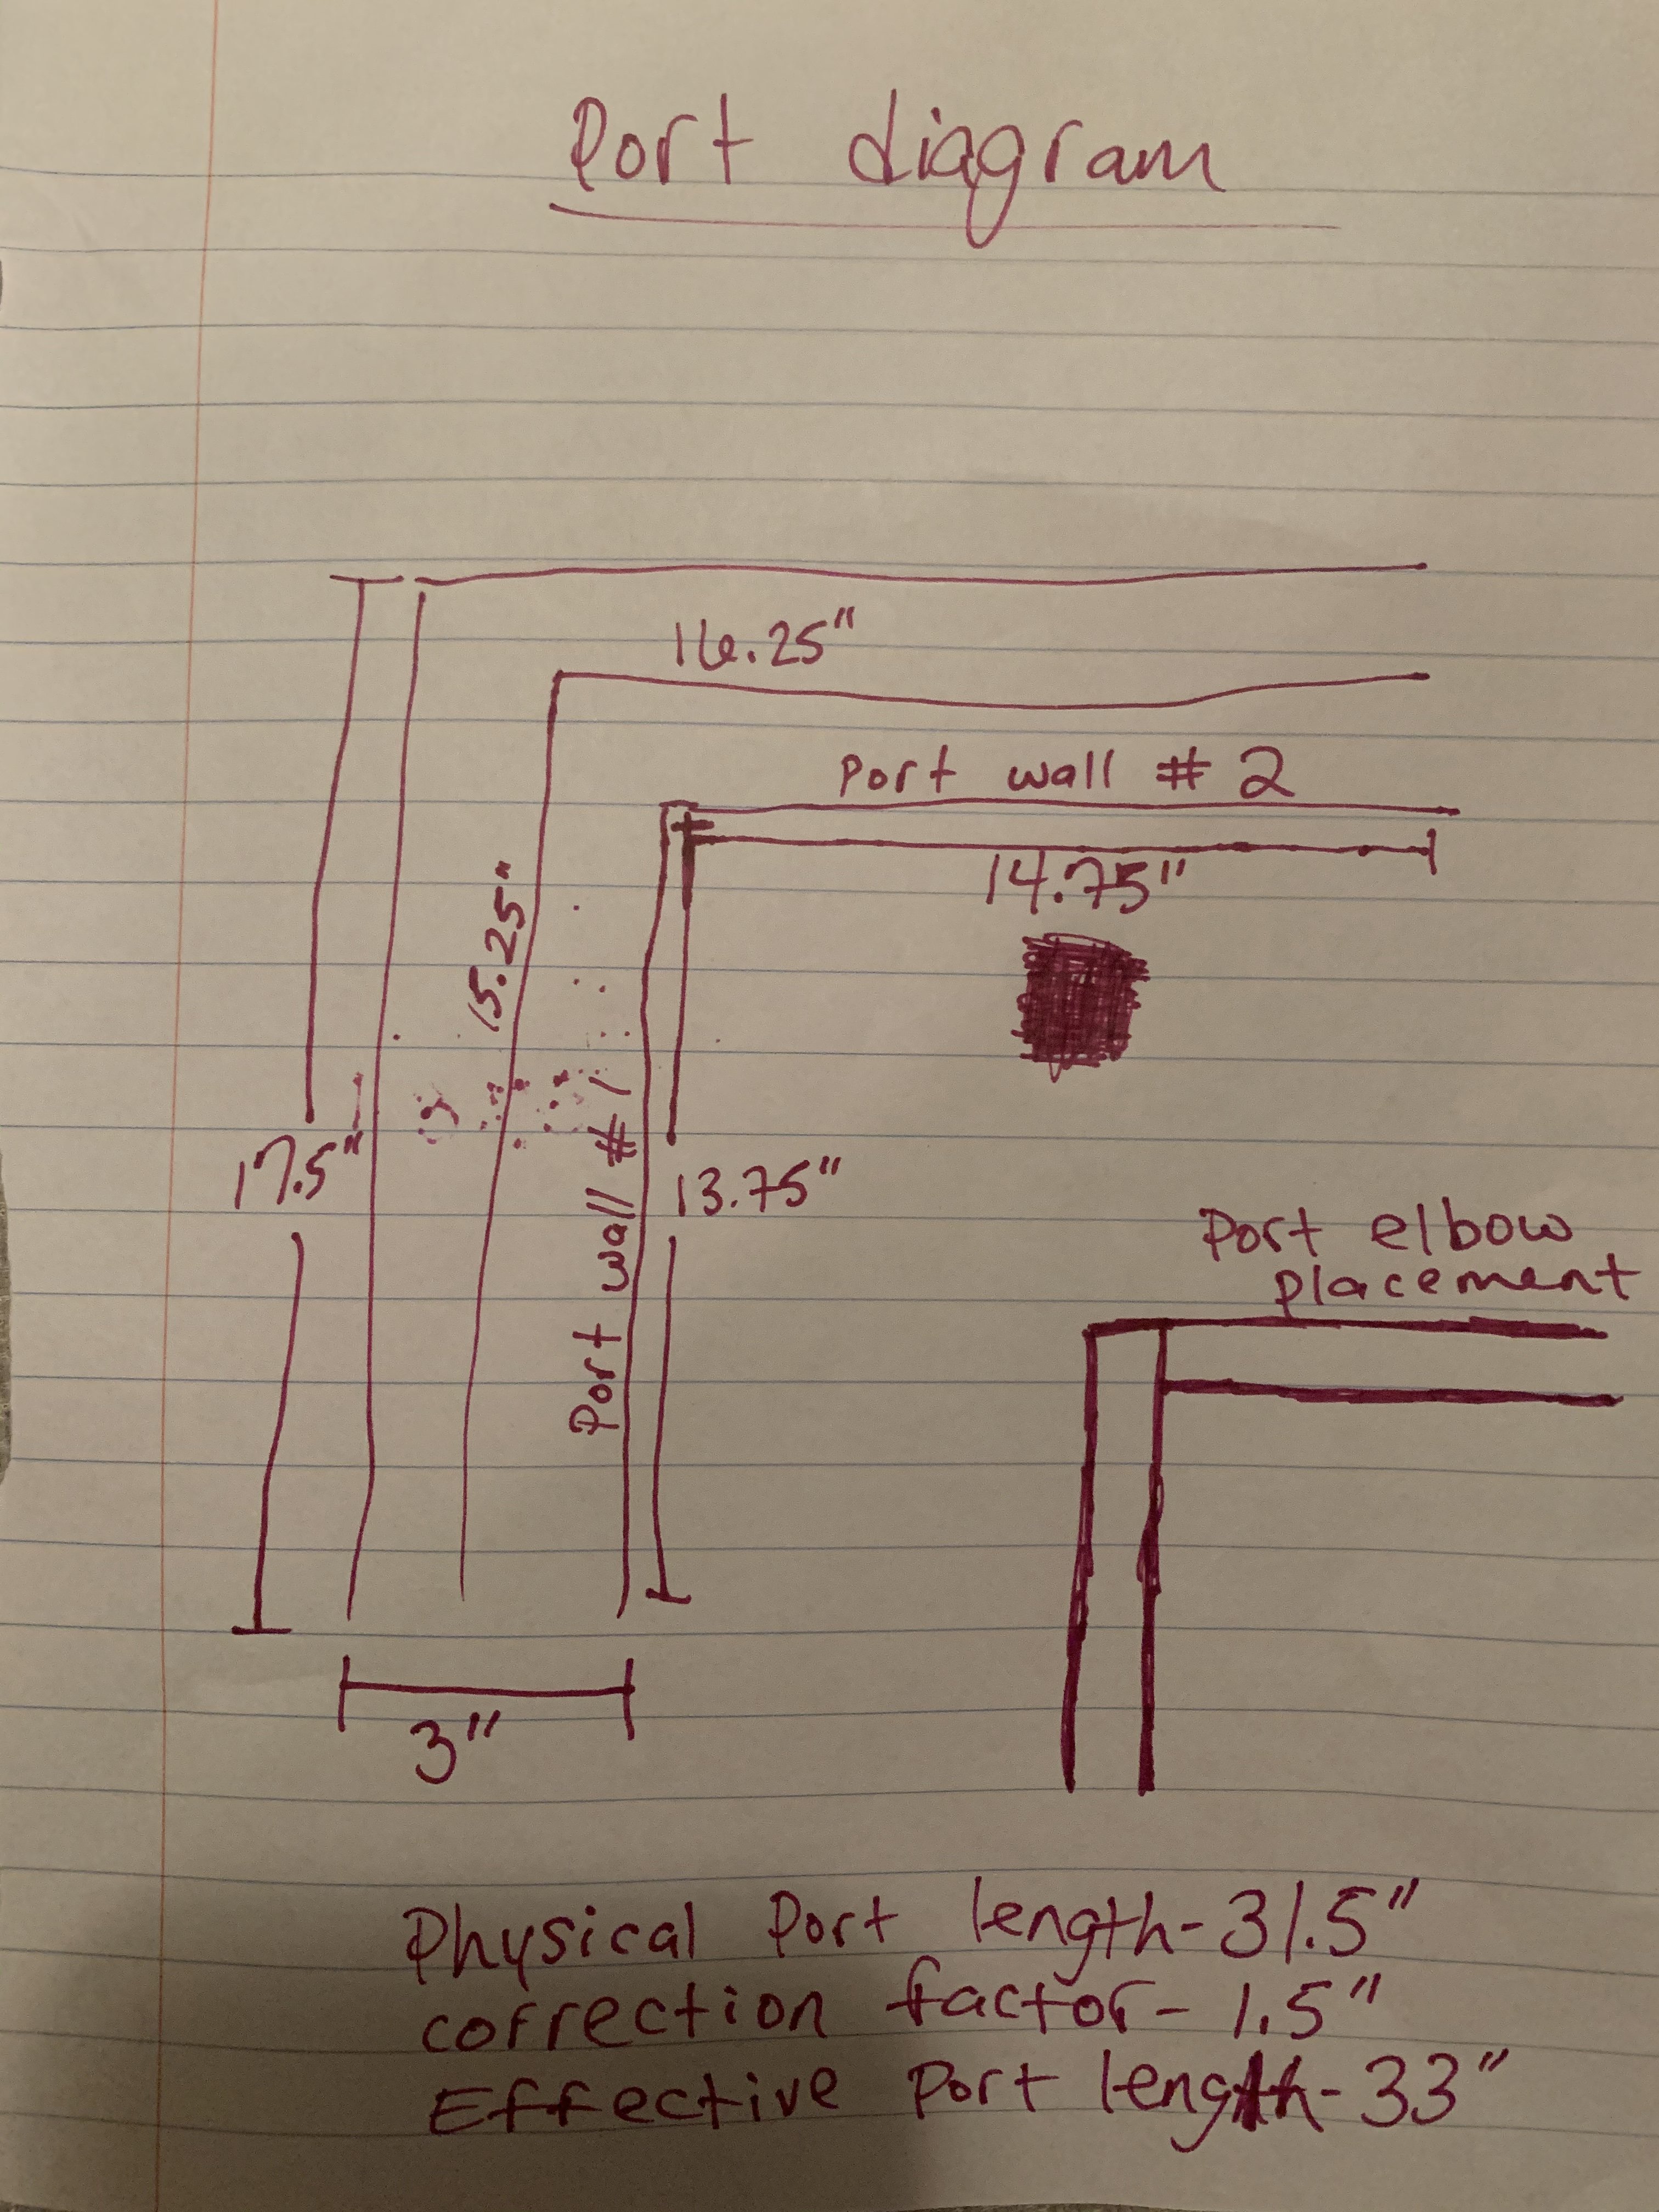 Port diagram
16.25"
Port wall # 2
14.75"
15.25"
Port wall # 1
17.5"
13.75"
Port elbow
placement
3"
Physical Port length - 31.5"
correction factor - 1.5"
Effective Port length - 33"